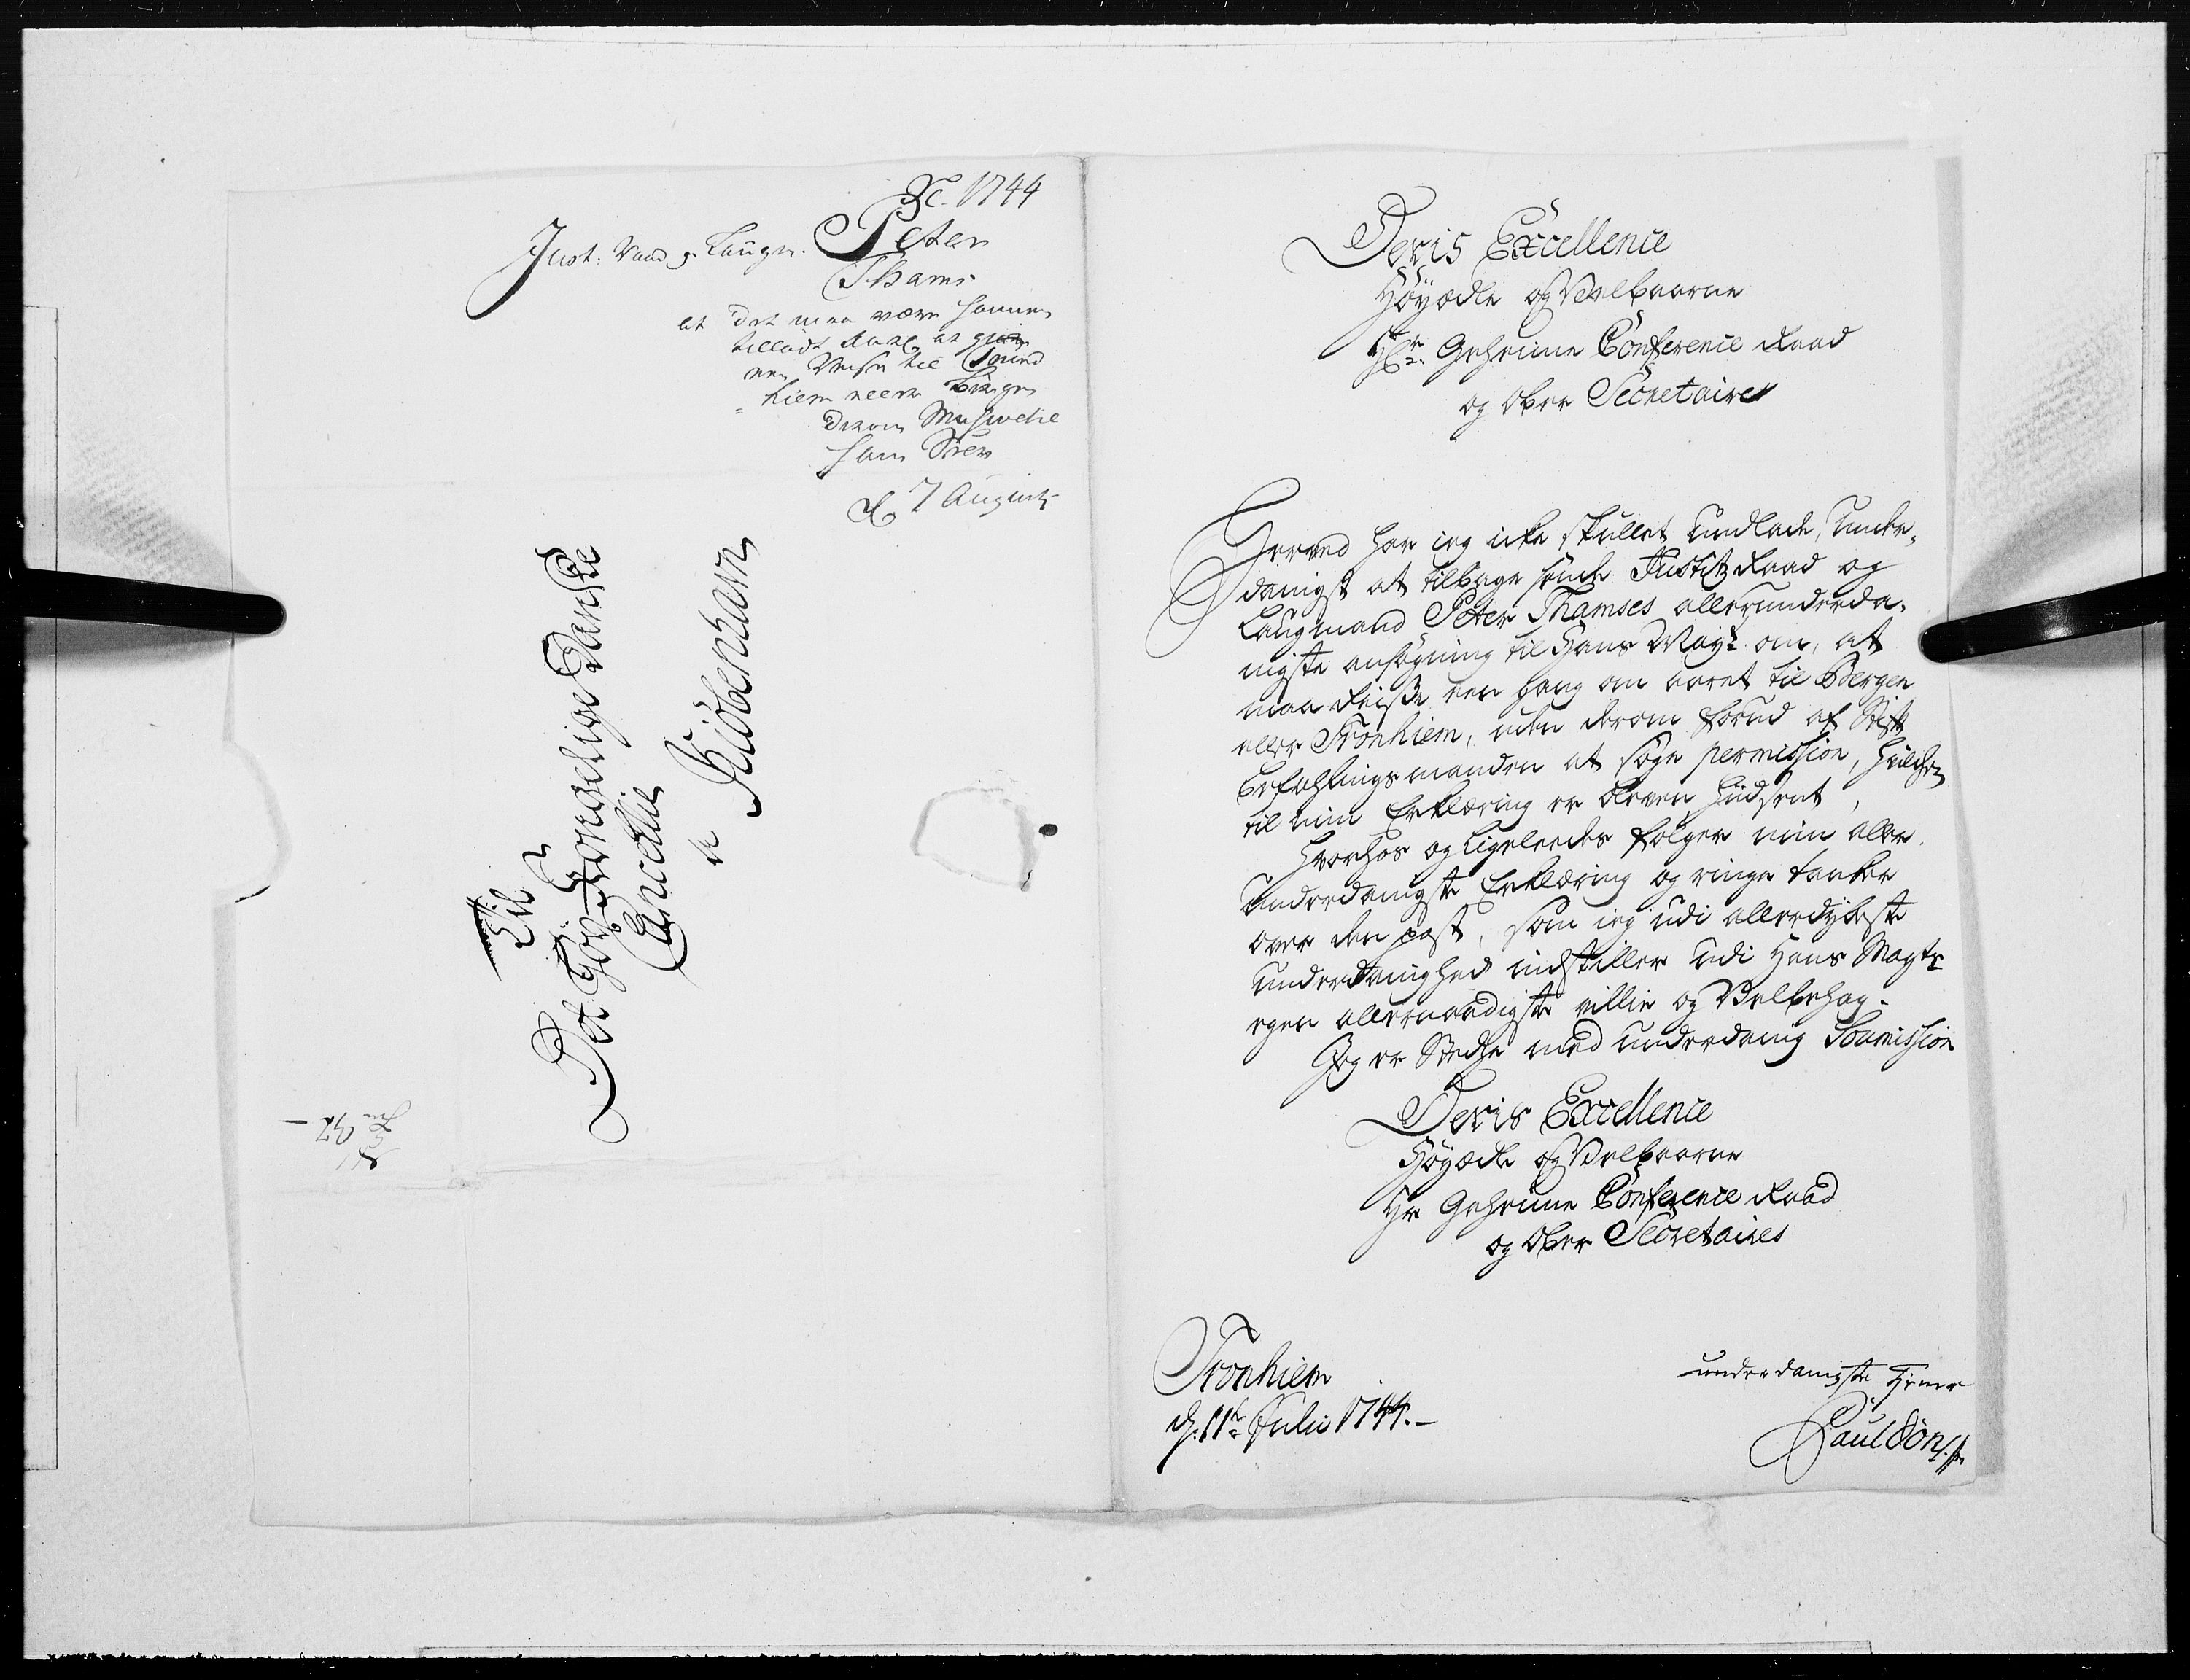 1744
Just: Raad og Laugm. Peter
Thams
at det maa være hannem
tilladt aarl. at giøre
een Reyse til Trond
hiem eller Bergen
d 7 August
Til
Det Høy-Kongelige Danske
Cancellie
a Kiöbenhavn
Deris Excellence
Höyædle og Velbaarne
Hr. Geheime Conference Raad
og Ober Secretaire
Herved har ieg icke skullet undlade, under,
danigst at tilbage sende Justitz Raad og
Laugmand Peter Thamses allerunderda,
nigste ansögning til Hans Mayt. om, at
maa Reise een gang om aaret til Bergen
eller Tronhiem, uden derom forud af Stift
befahlingsmanden at söge permission, hvilchen
til min Erklæring er bleven hidsent,
Hvorhos og ligeleedes fölger min aller,
underdanigste Erklæring og ringe tanker
over den post, som ieg udi allerdybeste
underdanighed indstiller udi Hans Mayts
egen allernaadigste villie og Velbehag.
Jeg er Stedse med underdanig Soumission
Deris Excellence
Höyædle og Velbaarne
Hr Geheime Conference Raad
og Ober Secretaires
Tronhiem
d. 11te Julii 1744.
underdanigste Tiener
Pauldön